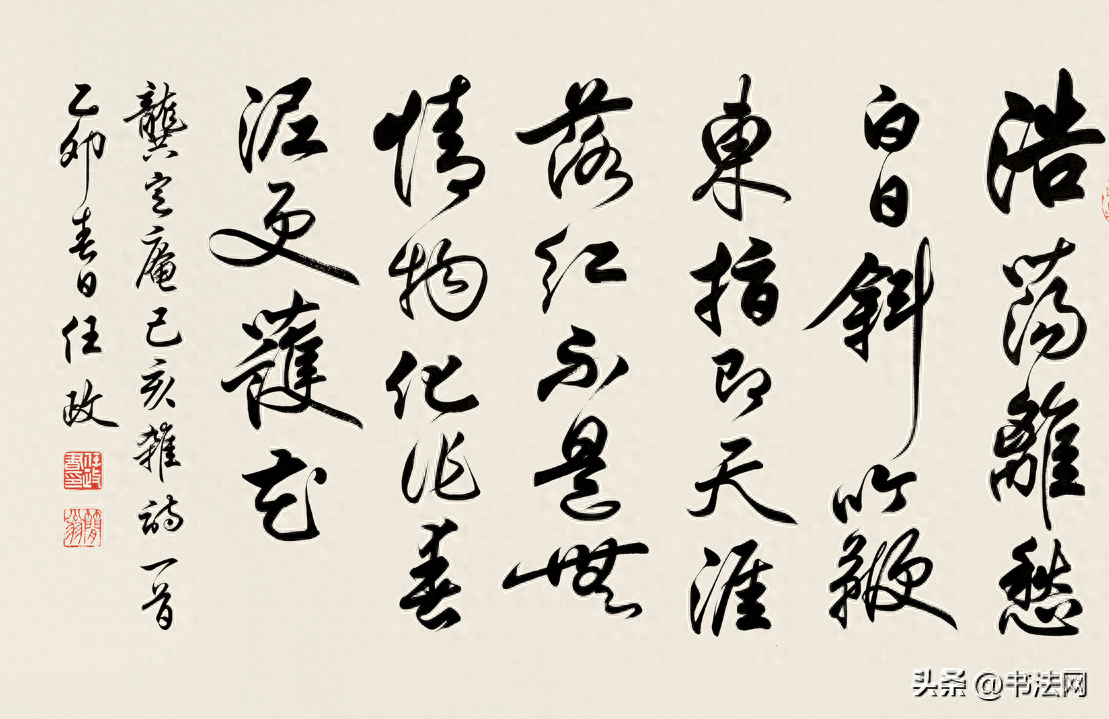 浩蕩離愁
白日斜吟鞭
東指即天涯
落紅不是無
情物化作春
泥更護花
龔定庵己亥雜詩一首
乙卯春日任政
任政書印
蘭齋
头条 @书法网